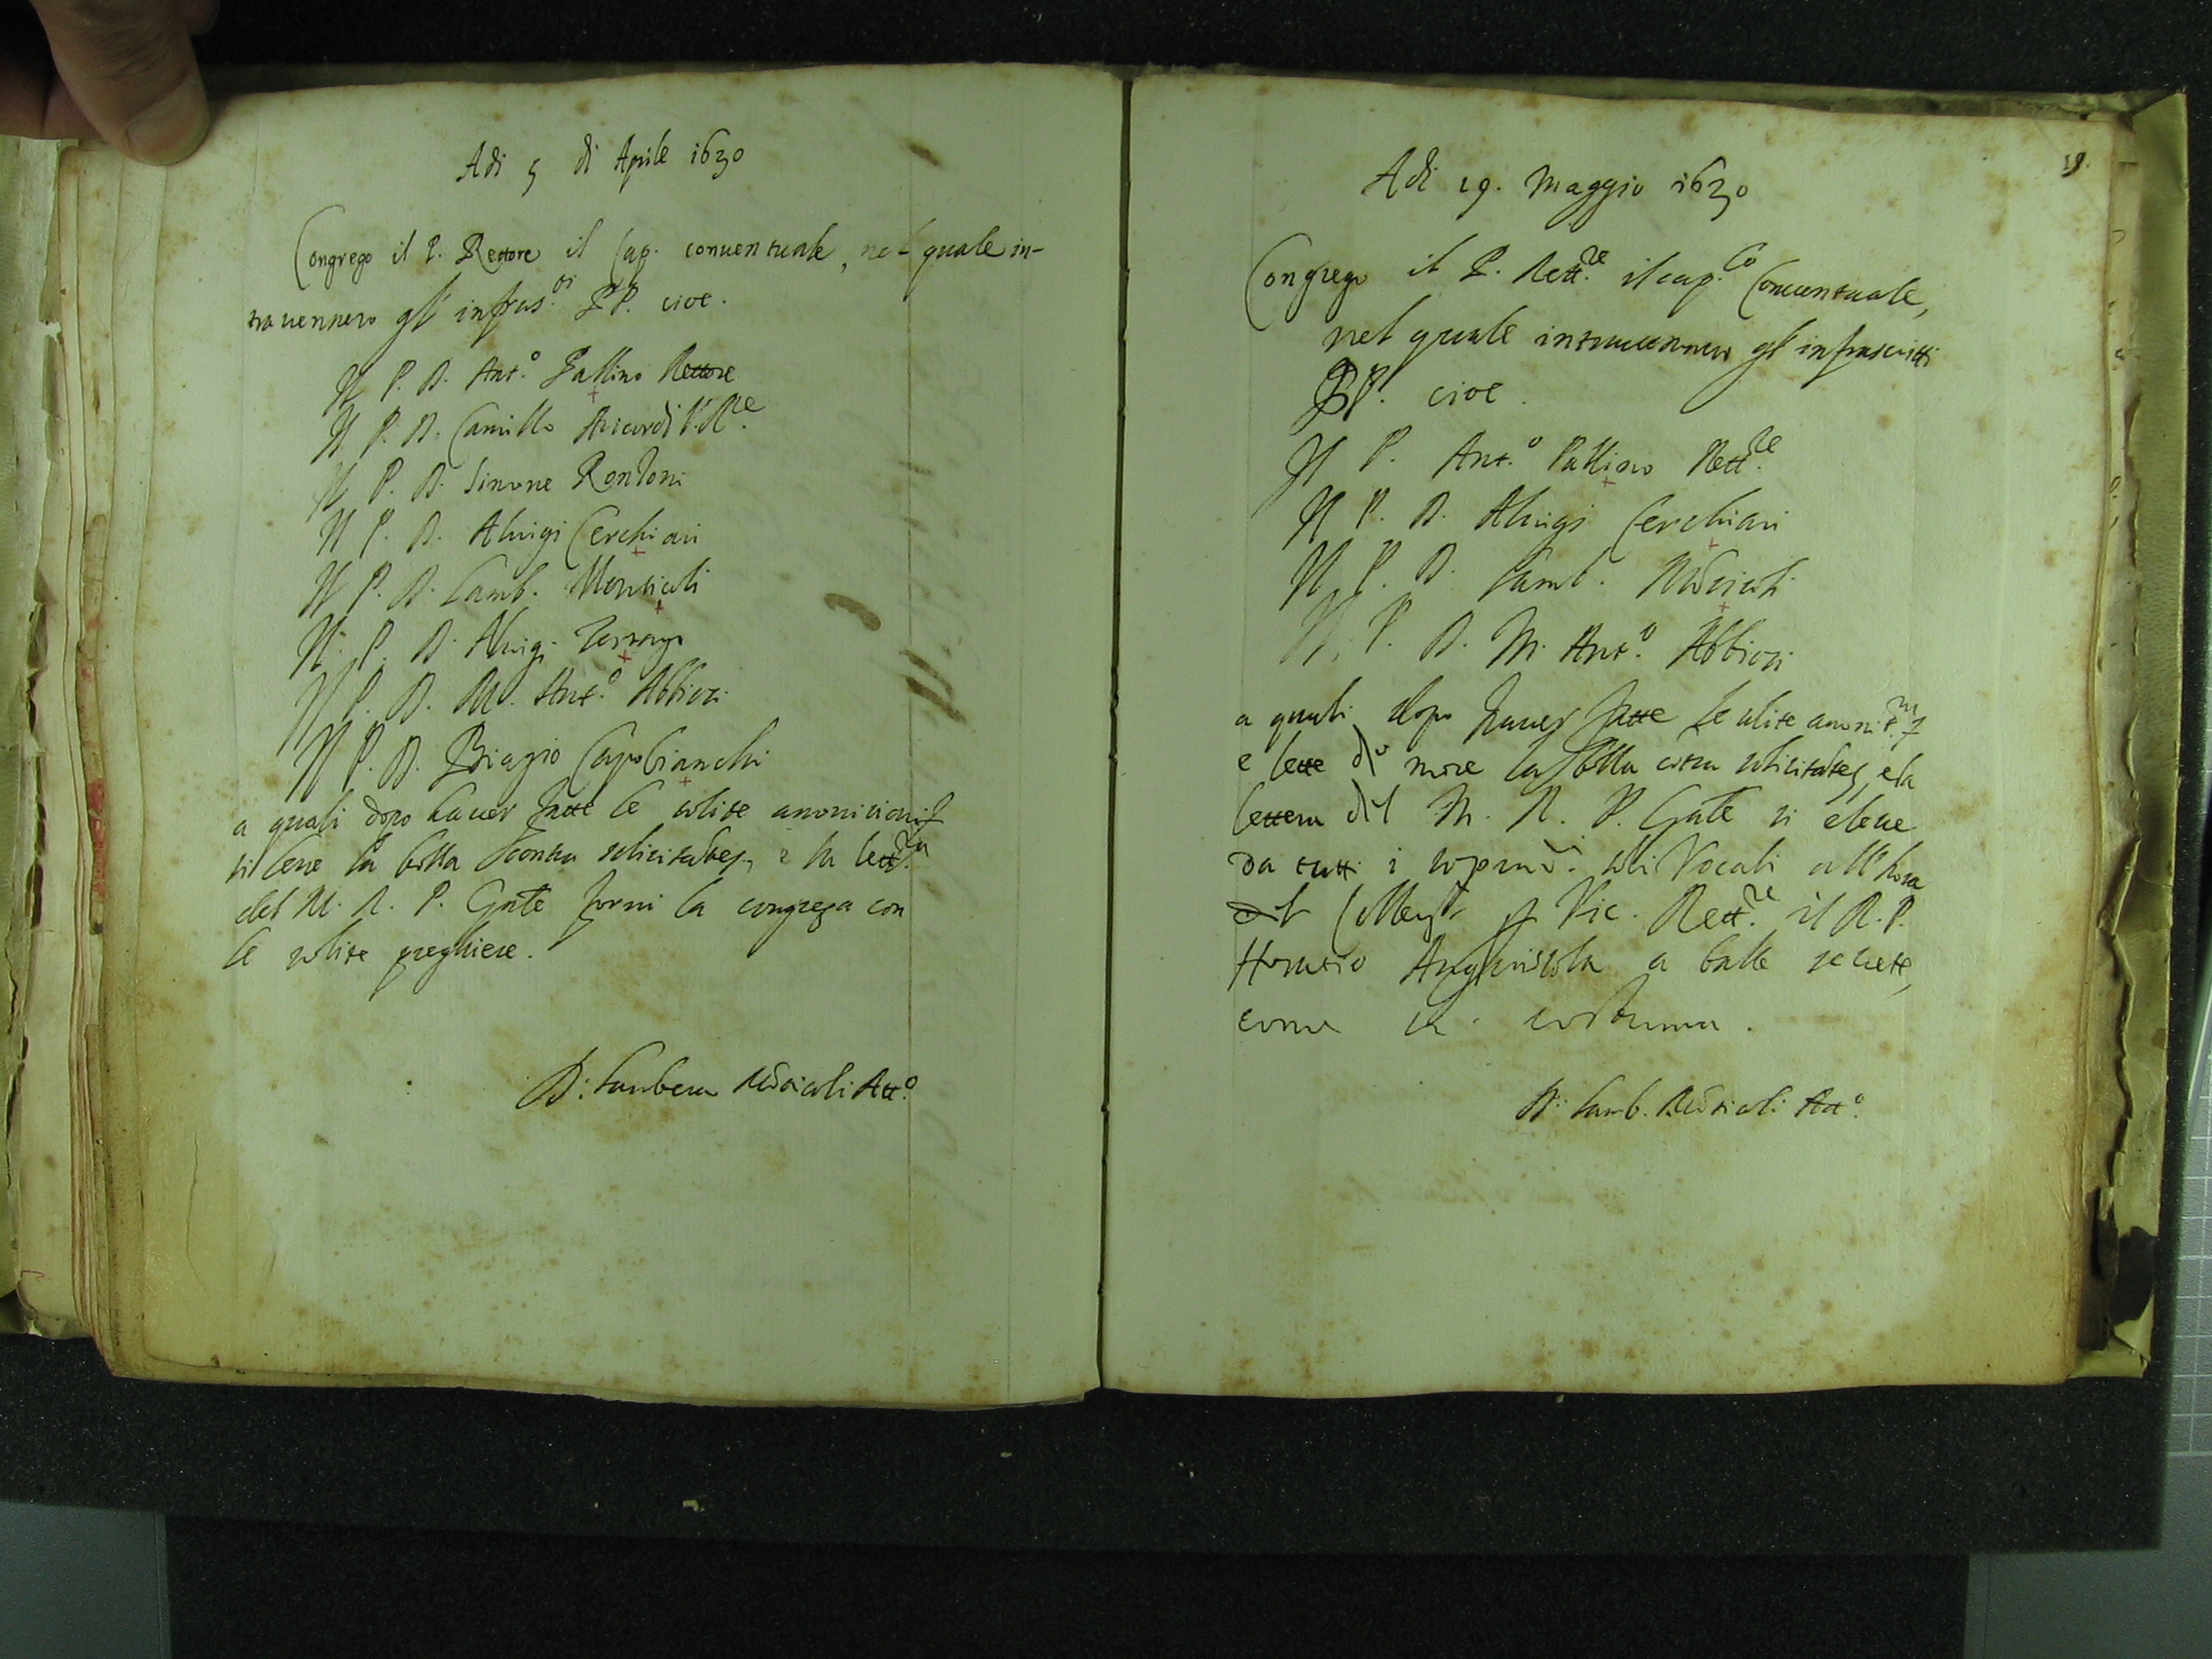 Adi 5 di Aprile 1630
Congrego il P. Rettore il Cap. conuentuale, nel quale in-
trauennero gl' infras.ti PP. cioe.
Il P. D. Ant.o Pallino Rettore
Il P. D. Camillo Ricordi V. R.re
Il P. D. Simone Rondoni
Il P. D. Aluigi Cerchiari
Il P. D. Lamb. Monticoli
Il P. D. Aluigi
Il P. D. M. Ant.o Abbiati
Il P. D. Biagio Capobianchi
a quali dopo hauer fatte le solite amonicioni
si lesse la bolla contra solicitantes, e la lett.ra
del M. R. P. Gnãle forni la congrega con
le solite preghiere.
D: Lamberto Mõticoli Att.o
18.
Adi 19. Maggio 1630
Congrego il P. Rett.re il cap.lo Conuentuale,
nel quale intrauennero gl' infrascritti
PP. cioe.
Il P. Ant.o Pallino Rett.re
Il P. D. Aluigi Cerchiari
Il P. D. Lamb. Mõticoli
Il P. D. M. Ant.o Abbiati
a quali dopo hauer fatte le solite amonit.ni
e lette di more la bolla cõtra solicitãtes, e la
lettera del M. R. P. Gnãle si elesse
da tutti i sopradi. Vocali all' hora
del Colleg.o p Vic. Rett.re il R. P.
Horatio Anguisola a balle secrete,
come si costuma.
D: Lamb. Mõticoli Att.o